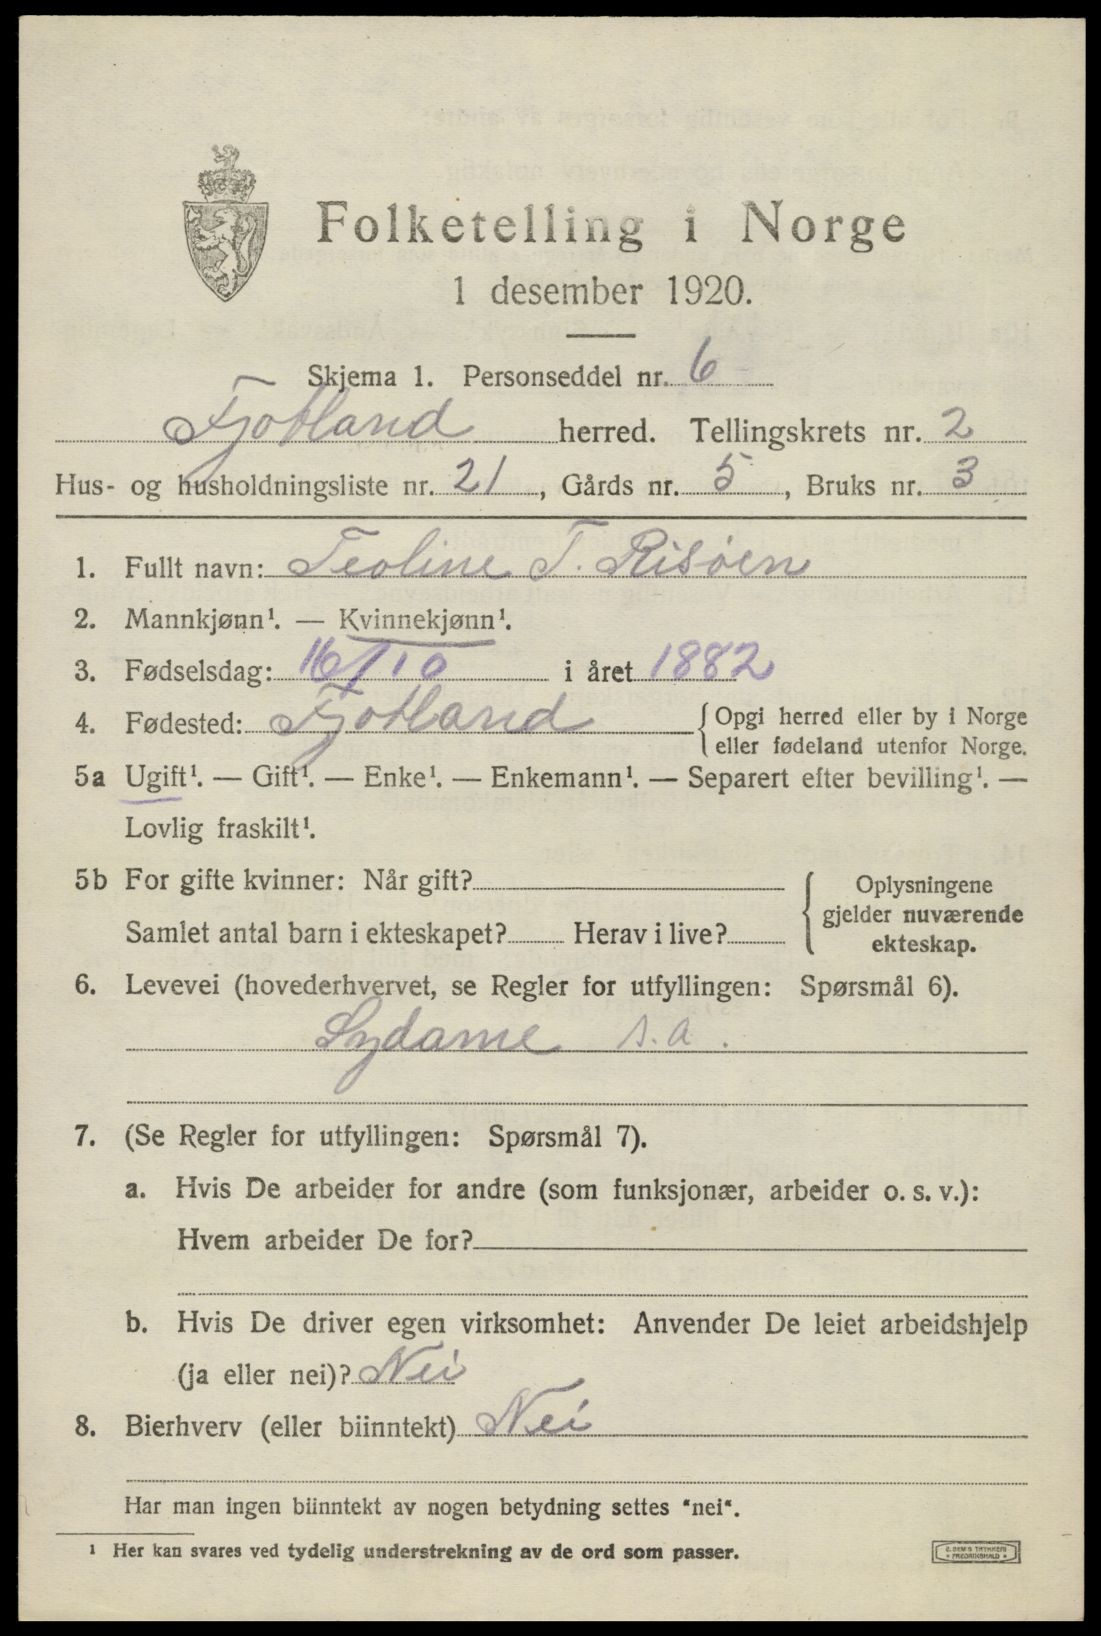 Folketelling i Norge
1 desember 1920.
Skjema 1. Personseddel nr. 6
Fjotland herred. Tellingskrets nr. 2
Hus- og husholdningsliste nr. 21, Gårds nr. 5, Bruks nr. 3
1. Fullt navn: Teoline T. Risöen
2. Mannkjønn¹. — Kvinnekjønn¹.
3. Fødselsdag: 16/10 i året 1882
4. Fødested: Fjotland {Opgi herred eller by i Norge
eller fødeland utenfor Norge.
5a Ugift¹. — Gift¹. — Enke¹. — Enkemann¹. — Separert efter bevilling¹. —
Lovlig fraskilt¹.
5b For gifte kvinner: Når gift? { Oplysningene
gjelder nuværende
Samlet antal barn i ekteskapet? Herav i live? ekteskap.
6. Levevei (hovederhvervet, se Regler for utfyllingen: Spørsmål 6).
Sydame s.a.
7. (Se Regler for utfyllingen: Spørsmål 7).
a. Hvis De arbeider for andre (som funksjonær, arbeider o. s. v.):
Hvem arbeider De for?
b. Hvis De driver egen virksomhet: Anvender De leiet arbeidshjelp
(ja eller nei)? Nei
8. Bierhverv (eller biinntekt) Nei
Har man ingen biinntekt av nogen betydning settes "nei".
¹ Her kan svares ved tydelig understrekning av de ord som passer.
E. SEM'S TRYKKERI
* FREDRIKSHALD *